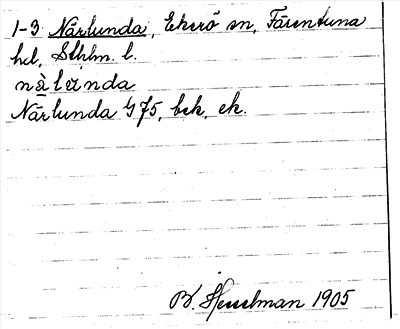 1-3 Närlunda, Ekerö sn, Färentuna
hd, Sthlm. l.
Närlunda G 75, bek, ek.
B. Hesselman 1905